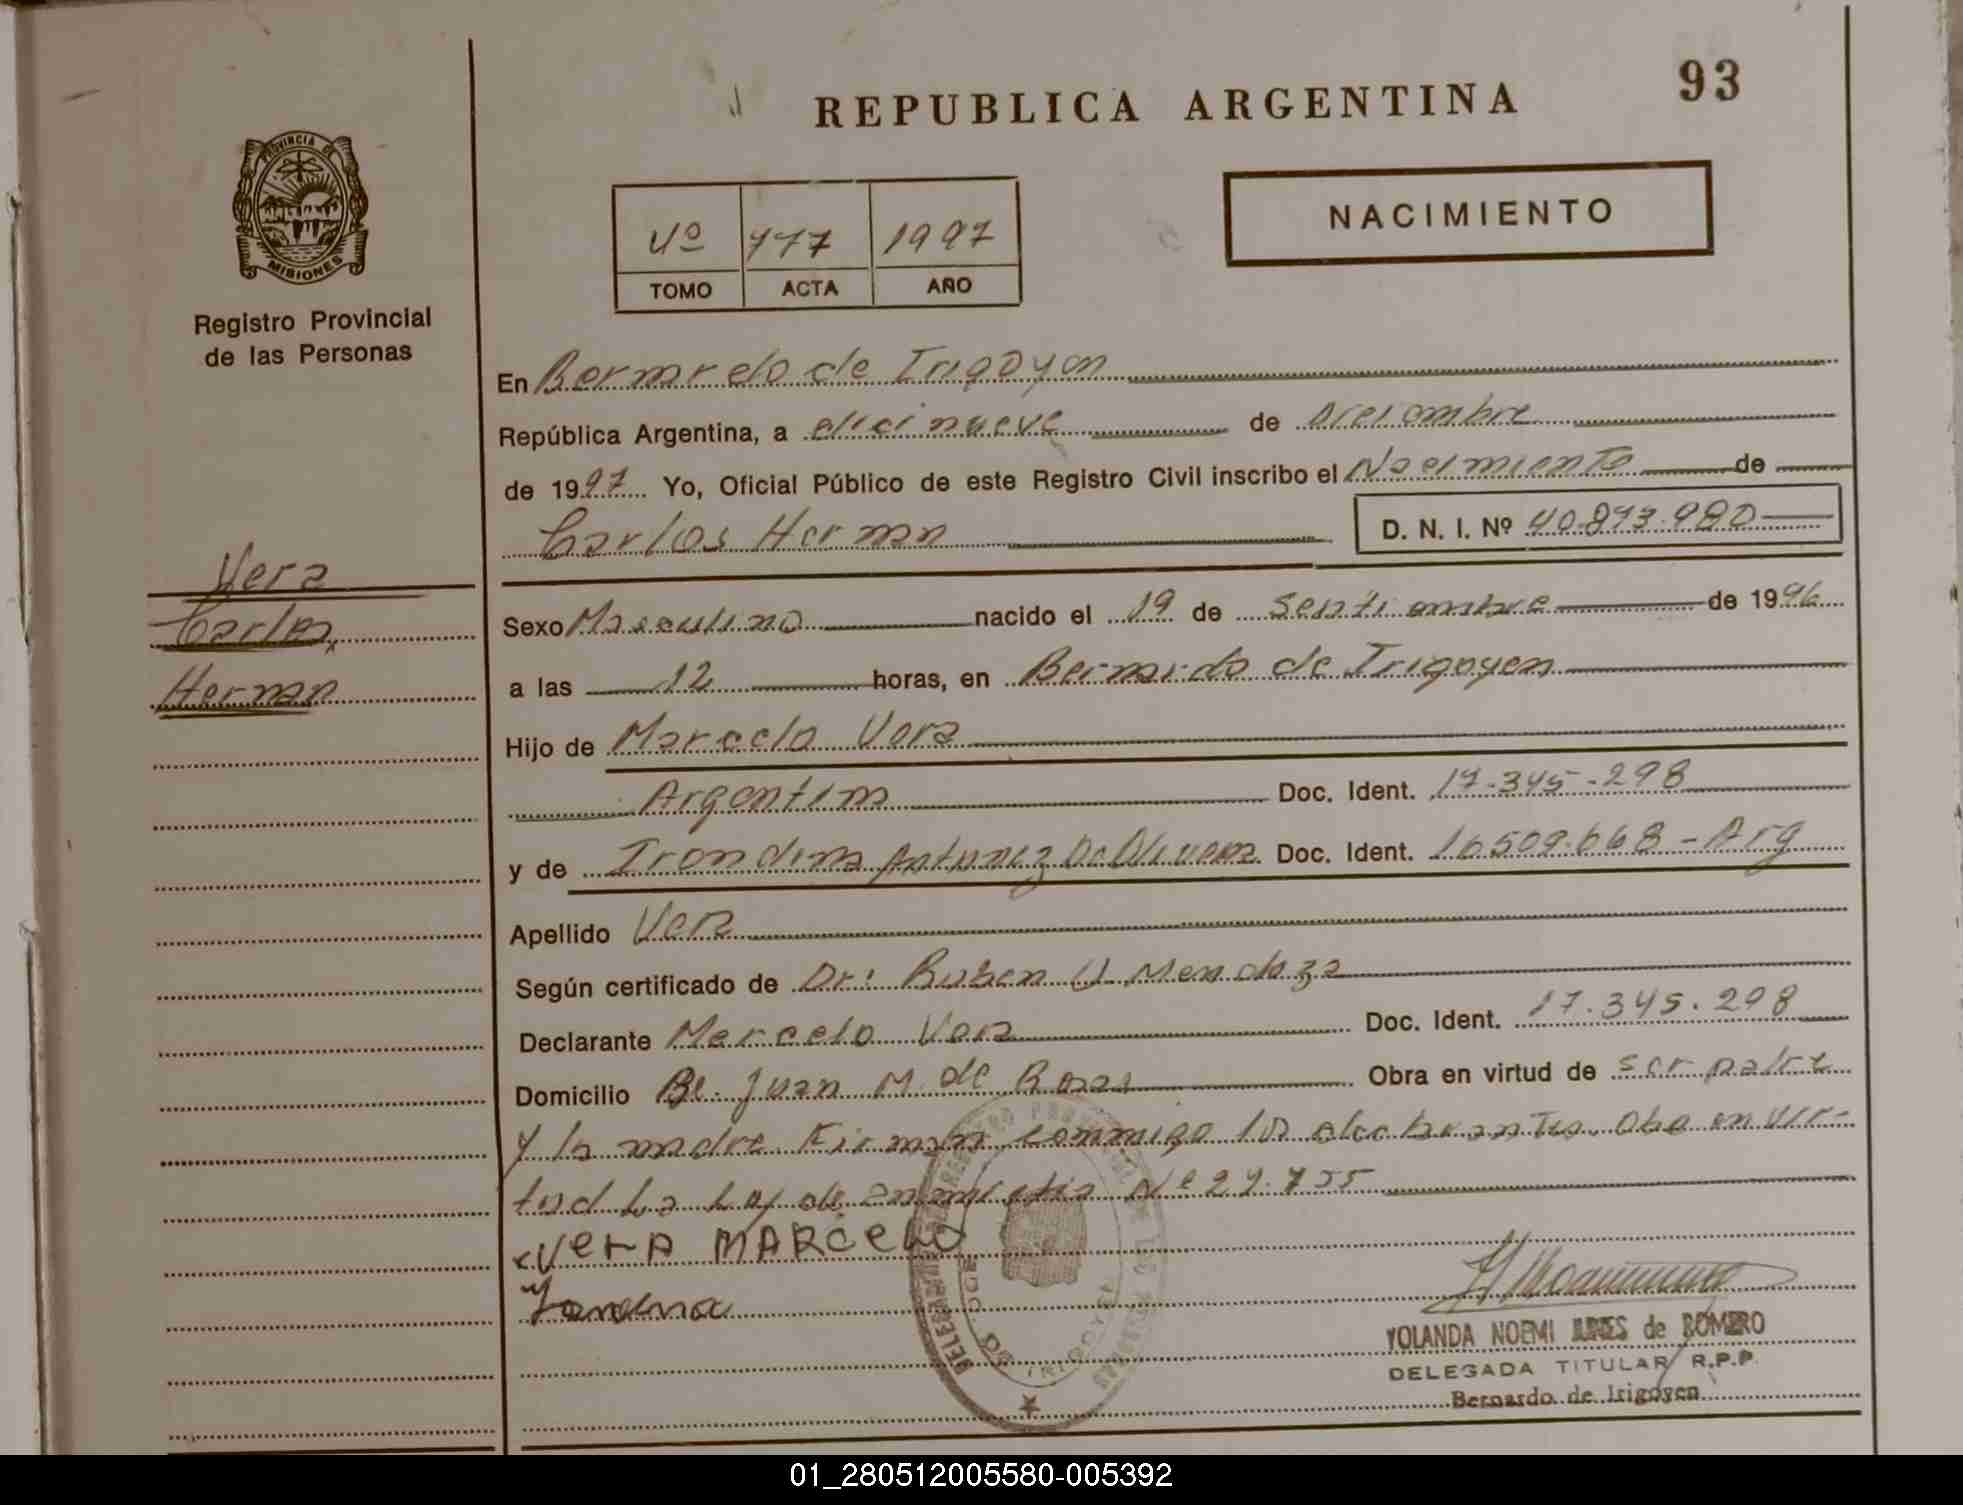 REPUBLICA ARGENTINA
93
PROVINCIA DE
MISIONES
Registro Provincial
de las Personas
1997
TOMO ACTA AÑO
NACIMIENTO
En Bernardo de Irigoyen
República Argentina, a dicinueve de Diciembre
de 1997 Yo, Oficial Público de este Registro Civil inscribo el Nacimiento de
Carlos Hernan D. N. I. Nº 40.893.980
Vera
Carlos
Hernan
Sexo Masculino nacido el 19 de Sentiembre de 1996
a las 12 horas, en Bernardo de Irigoyen
Hijo de Marcelo Vera
Argentina Doc. Ident. 17.345.298
y de Irondina Antunez De Oliveira Doc. Ident. 16509.668 - Arg
Apellido Vera
Según certificado de Dr: Ruben Mendoza
Declarante Marcelo Vera Doc. Ident. 17.345.298
Domicilio Bº. Juan M. de Rosas Obra en virtud de ser padre
y la madre. Firman conmigo los declarantes. Oba en vir-
tud La Ley de amnistia Nº 24.755
VerA MARceLO
YOLANDA NOEMI de ROMERO
DELEGADA TITULAR R.P.P.
Bernardo de Irigoyen
01_280512005580-005392